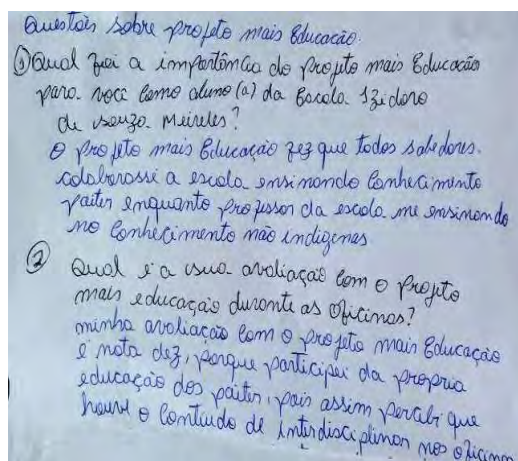 Questões sobre projeto mais Educação.
① Qual foi a importância do projeto mais Educação
para você como aluno (a) da Escola Izidoro
de souza Meireles?
O projeto mais Educação fez que todos sabedores
colaborasse a escola ensinando conhecimento
paiter enquanto professor da escola me ensinando
no conhecimento não indígenas
② Qual é a sua avaliação com o projeto
mais educação durante as oficinas?
minha avaliação com o projeto mais Educação
é nota dez, porque participei da propria
educação dos paiter, pois assim percebi que
houve o conteudo de interdisciplinar nos oficinas